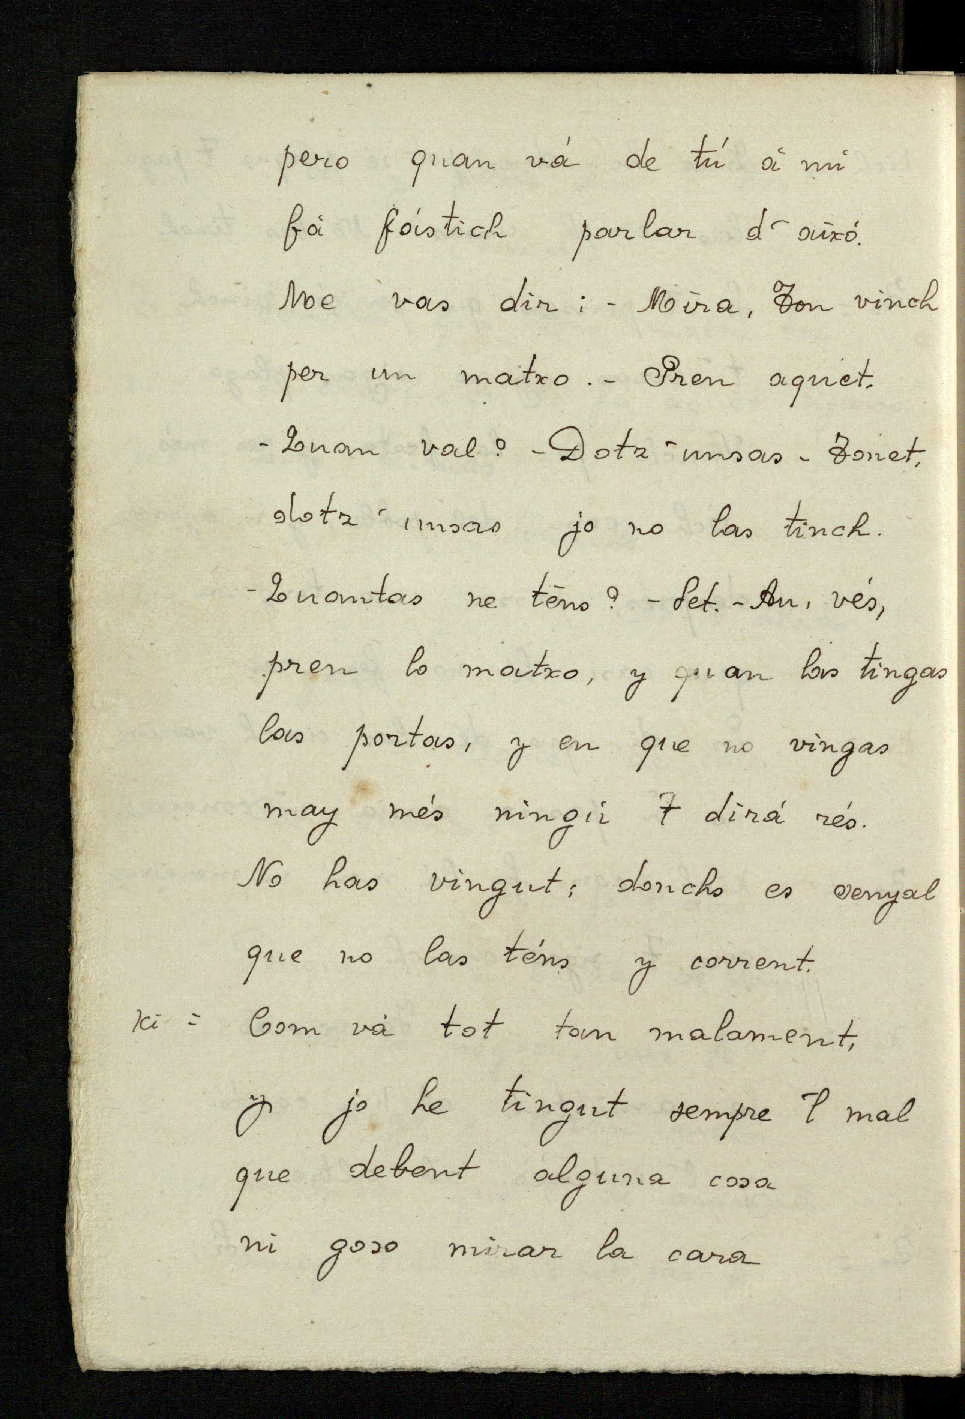 pero quan vá de tú á mí
fá fástich parlar d' aixó.
Me vas dir: - Mira, Ton vinch
per un matxo. - Pren aquet.
- Quan val? - Dotz' unsas - Tonet,
dotz' unsas jo no las tinch.
- Quantas ne téns? - Set. - Au, vés,
pren lo matxo, y quan las tingas
las portas, y en que no vingas
may més ningú 't dirá rés.
No has vingut; donchs es senyal
que no las téns y corrent.
Ki = Com vá tot tan malament,
y jo he tingut sempre 'l mal
que debent alguna cosa
ni goso mirar la cara